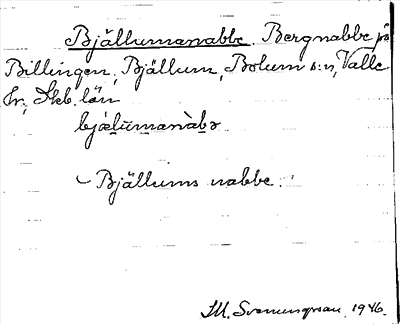 Bjällumanabbe. Bergnabbe på
Billingen, Bjällum, Bolum s:n, Valle
hr, Skb. län
bjælūmanàbə
Bjällums nabbe.
M. Svenungsson 1946.